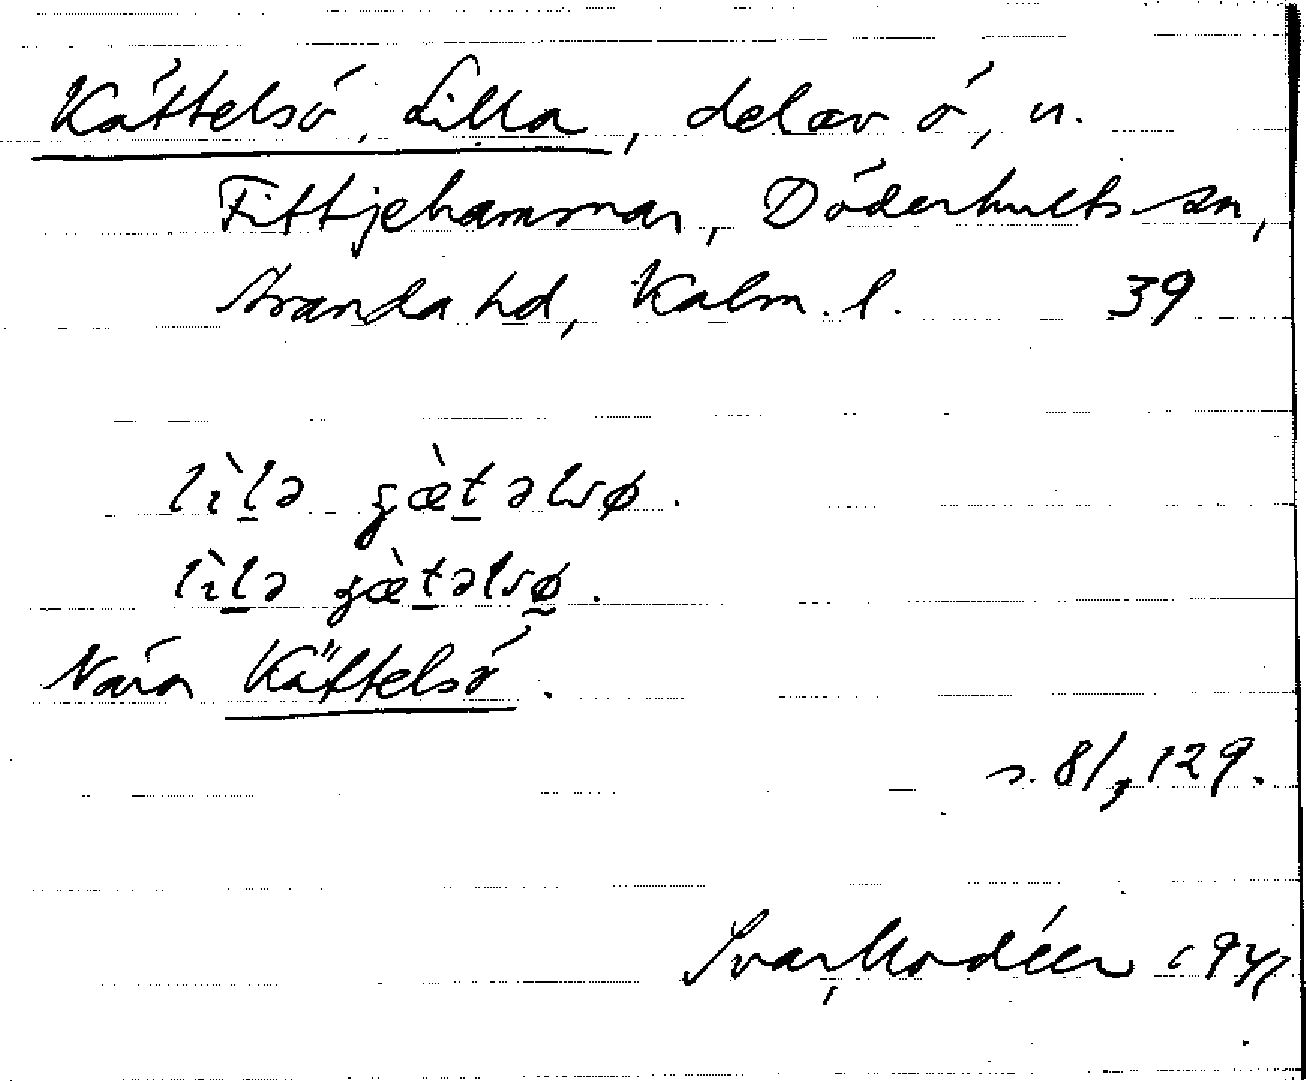 Kättelsö, Lilla, del av ö, n.
Fittjehammar, Döderhults sn,
Stranda hd, Kalm. l. 39
lìl̠ə gæ̀t̠əlsø.
lìl̠ə gæ̀t̠əlsø̰.
Nära Kättelsö.
s. 81, 129.
Ivar Modéer 1941